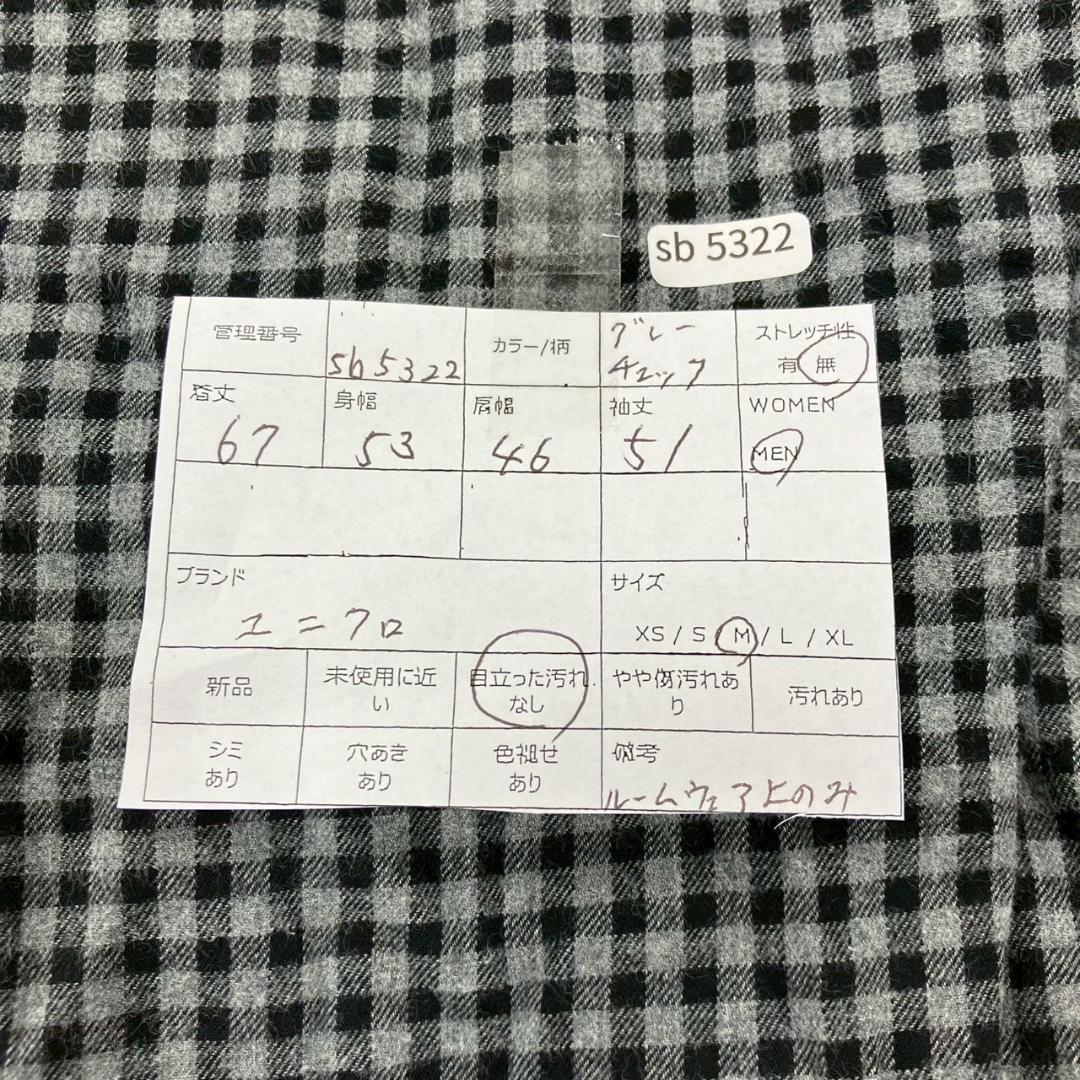 sb 5322
管理番号
sb5322
カラー/柄
グレー
チェック
ストレッチ性
有 無
着丈
67
身幅
53
肩幅
46
袖丈
51
WOMEN
MEN
ブランド
ユニクロ
サイズ
XS / S / M / L / XL
新品
未使用に近
い
目立った汚れ
なし
やや傷汚れあ
り
汚れあり
シミ
あり
穴あき
あり
色褪せ
あり
備考
ルームウェア上のみ